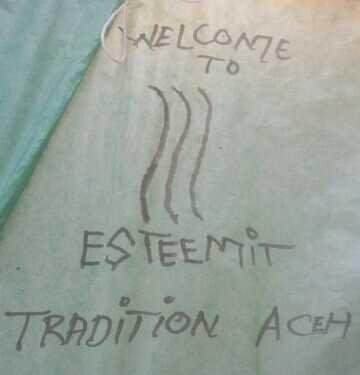 WELCOME
TO
ESTEEMiT
TRADiTiON ACEH